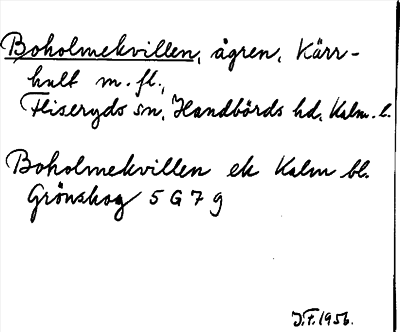 Boholmekvillen, ägren, Kärr-
hult m. fl.,
Fliseryds sn, Handbörds hd, Kalm. l.
Boholmekvillen ek Kalm bl.
Grönskog 5 G 7 g
J.F. 1956.